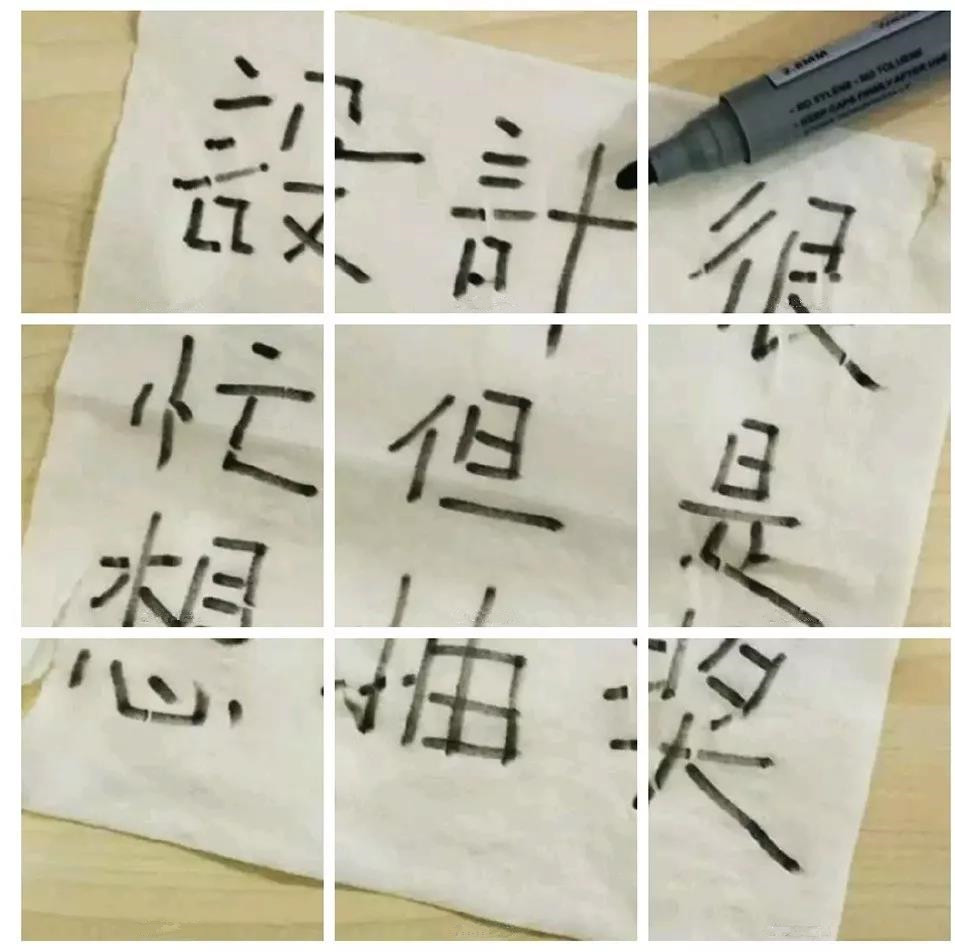 設計很
忙但是
想抽獎
2.8MM
- NO XYLENE - NO TOLUENE
- KEEP CAPS FIRMLY AFTER USE